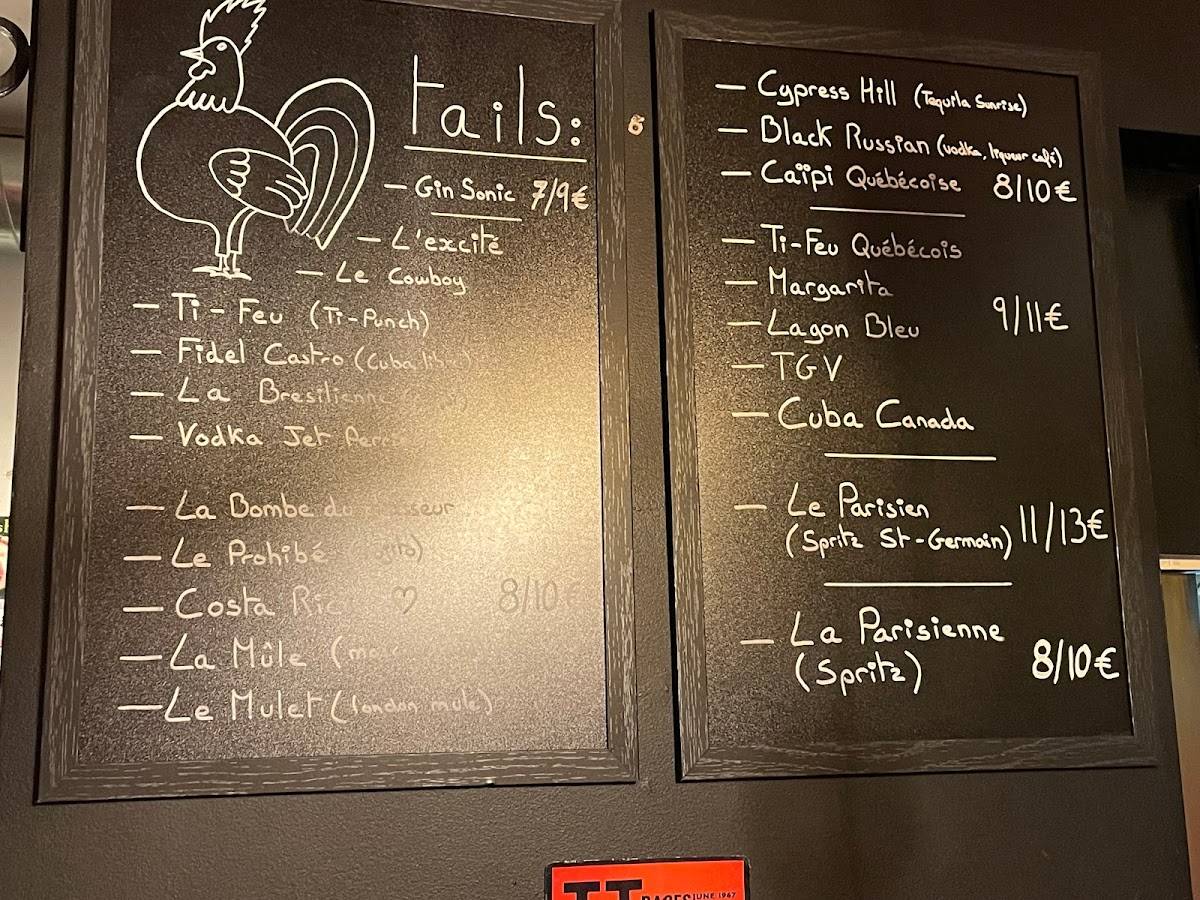 tails:
— Gin Sonic 7/9€
— L'excité
— Le Cowboy
— Ti-Feu (Ti-Punch)
— Fidel Castro (Cuba
— La
— Vodka Jet
— La Bombe
— Le Prohibé
— Costa 8/10€
— La Mûle
— Le Mulet (london mule)
— Cypress Hill (Tequila Sunrise)
— Black Russian (vodka, liqueur café)
— Caïpi Québécoise 8/10€
— Ti-Feu Québécois
— Margarita
— Lagon Bleu 9/11€
— TGV
— Cuba Canada
— Le Parisien
(Spritz St-Germain) 11/13€
— La Parisienne
(Spritz) 8/10€
JUNE 1967